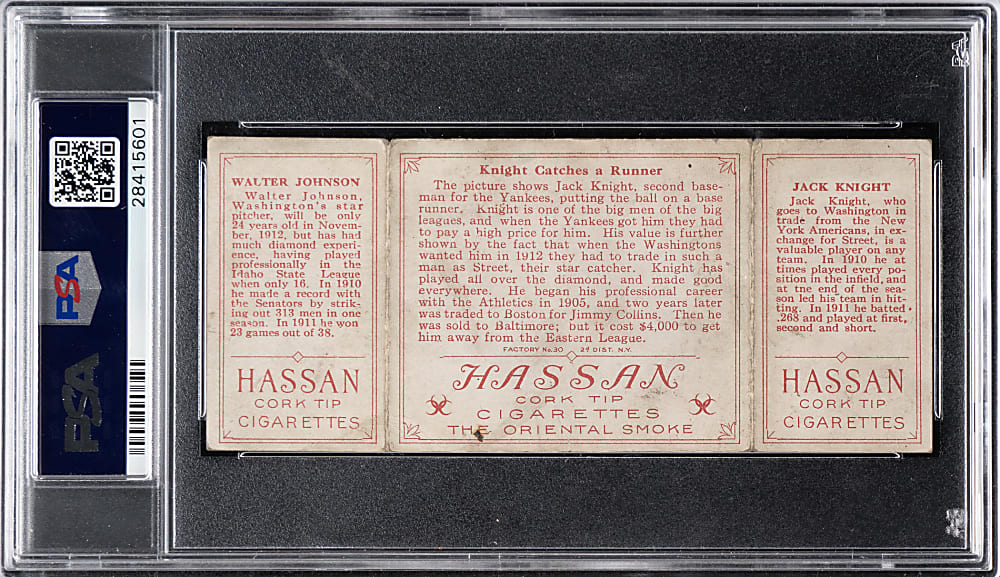 28415601
PSA
PSA
WALTER JOHNSON
Walter Johnson,
Washington's star
pitcher, will be only
24 years old in Novem-
ber, 1912, but has had
much diamond experi-
ence, having played
professionally in the
Idaho State League
when only 16. In 1910
he made a record with
the Senators by strik-
ing out 313 men in one
season. In 1911 he won
23 games out of 38.
HASSAN
CORK TIP
CIGARETTES
Knight Catches a Runner
The picture shows Jack Knight, second base-
man for the Yankees, putting the ball on a base
runner. Knight is one of the big men of the big
leagues, and when the Yankees got him they had
to pay a high price for him. His value is further
shown by the fact that when the Washingtons
wanted him in 1912 they had to trade in such a
man as Street, their star catcher. Knight has
played all over the diamond, and made good
everywhere. He began his professional career
with the Athletics in 1905, and two years later
was traded to Boston for Jimmy Collins. Then he
was sold to Baltimore; but it cost $4,000 to get
him away from the Eastern League.
FACTORY No. 30 2d DIST. N.Y.
HASSAN
CORK TIP
CIGARETTES
THE ORIENTAL SMOKE
JACK KNIGHT
Jack Knight, who
goes to Washington in
trade from the New
York Americans, in ex-
change for Street, is a
valuable player on any
team. In 1910 he at
times played every po-
sition in the infield, and
at the end of the sea-
son led his team in hit-
ting. In 1911 he batted
.268 and played at first,
second and short.
HASSAN
CORK TIP
CIGARETTES